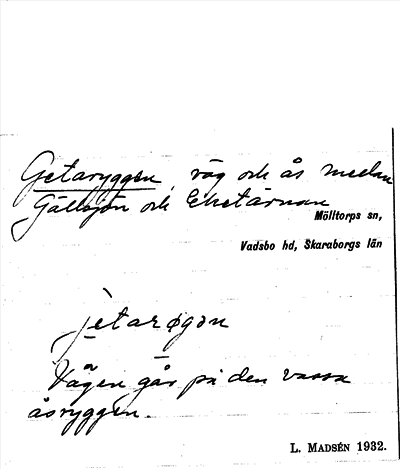 Getaryggen, väg och ås mellan
Gällsjön och Eketärnan
Mölltorps sn,
Vadsbo hd, Skaraborgs län
jetarøgən
Vägen går på den vassa
åsryggen.
L. MADSÉN 1932.